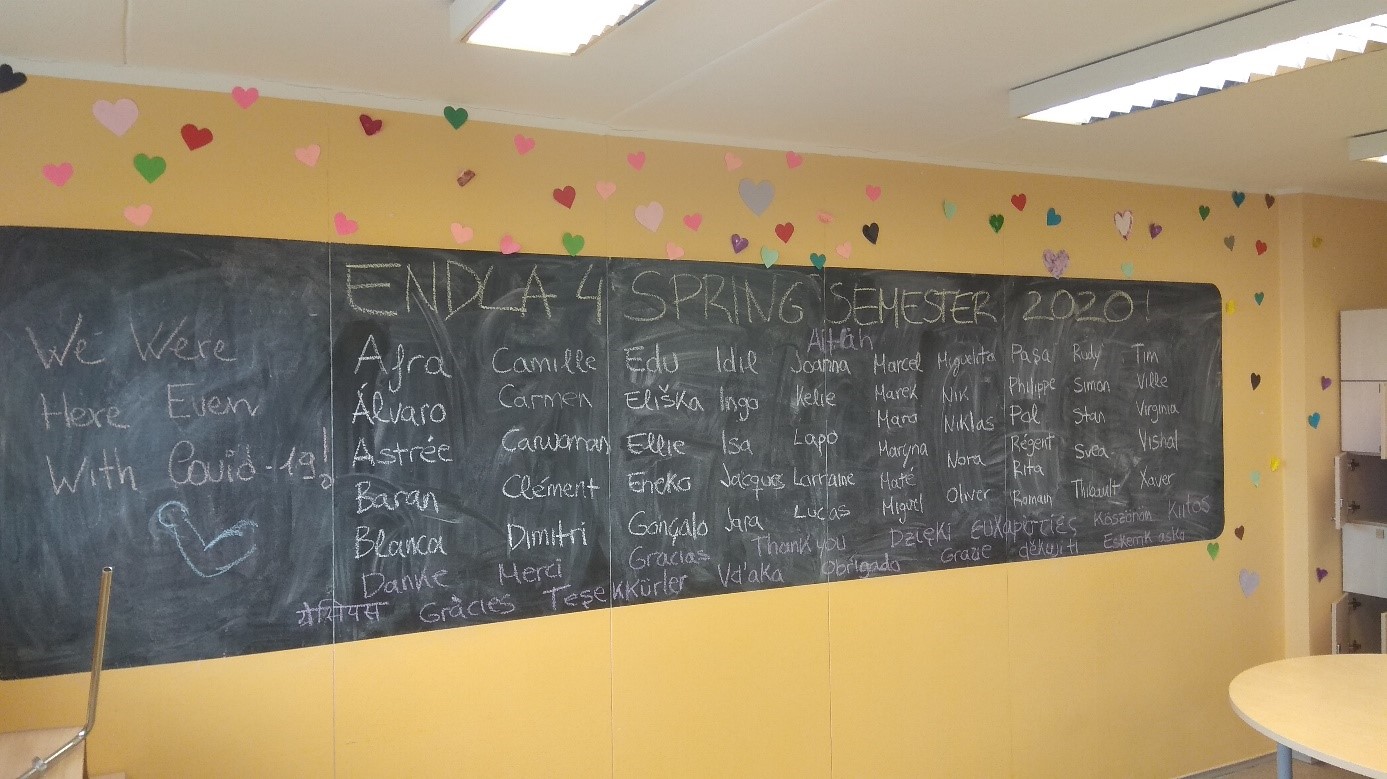 ENDLA 4 SPRING SEMESTER 2020!
We Were
Here Even
With Covid-19!
Afra
Álvaro
Astrée
Baran
Blanca
Camille
Carmen
Carwoman
Clément
Dimitri
Edu
Eliška
Ellie
Eneko
Gonçalo
Idil
Ingo
Isa
Jacques
Jara
Joanna
Kelie
Lapo
Lorraine
Lucas
Marcel
Marek
Maro
Maryna
Maté
Miguel
Miguelita
Nik
Niklas
Nora
Oliver
Paşa
Philippe
Pol
Régent
Rita
Romain
Rudy
Simon
Stan
Svea
Thibault
Tim
Ville
Virginia
Vishal
Xaver
Aitäh
Danke Merci Gracias Thank you Dzięki ευχαριστίες Köszönöm Kiitos
Gràcies Teşekkürler Vd'aka Obrigado Grazie děkuji ti Eskerrik asko